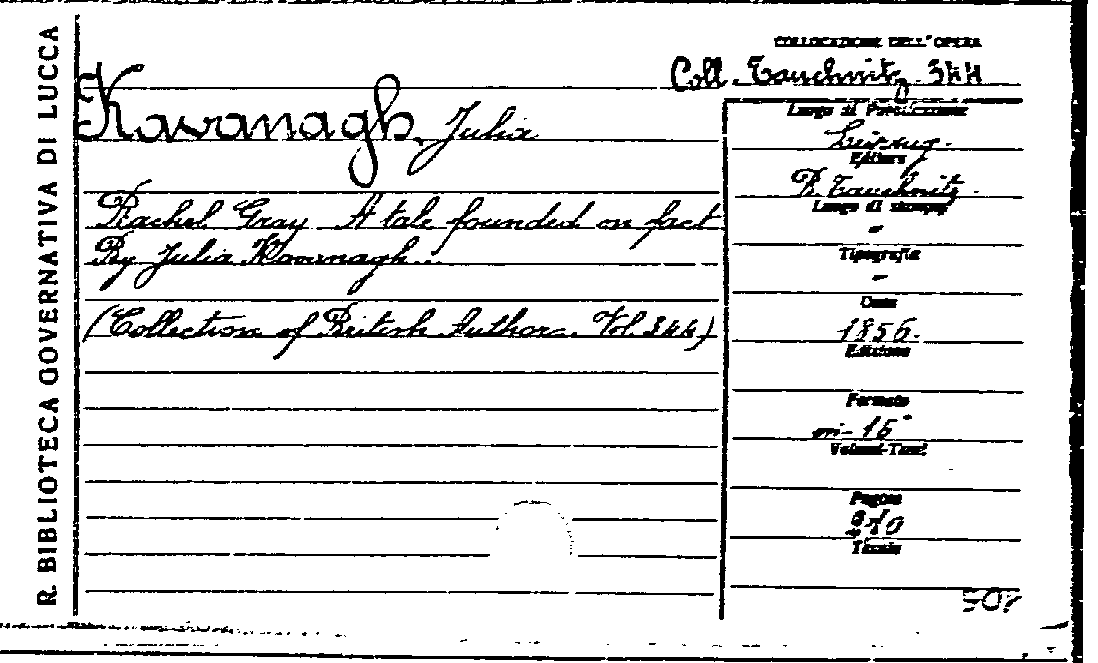 R. BIBLIOTECA GOVERNATIVA DI LUCCA
COLLOCAZIONE DELL'OPERA
Coll. Tauchnitz 344
Kavanagh Julia
Rachel Gray A tale founded on fact
By Julia Kavanagh...
(Collection of British Authors. Vol. 344)
Luogo di Pubblicazione
Leipzig.
Editore
B. Tauchnitz.
Luogo di stampa
-
Tipografia
-
Data
1856.
Edizione
Formato
in-16°
Volumi-Tomi
Pagine
310
Tavole